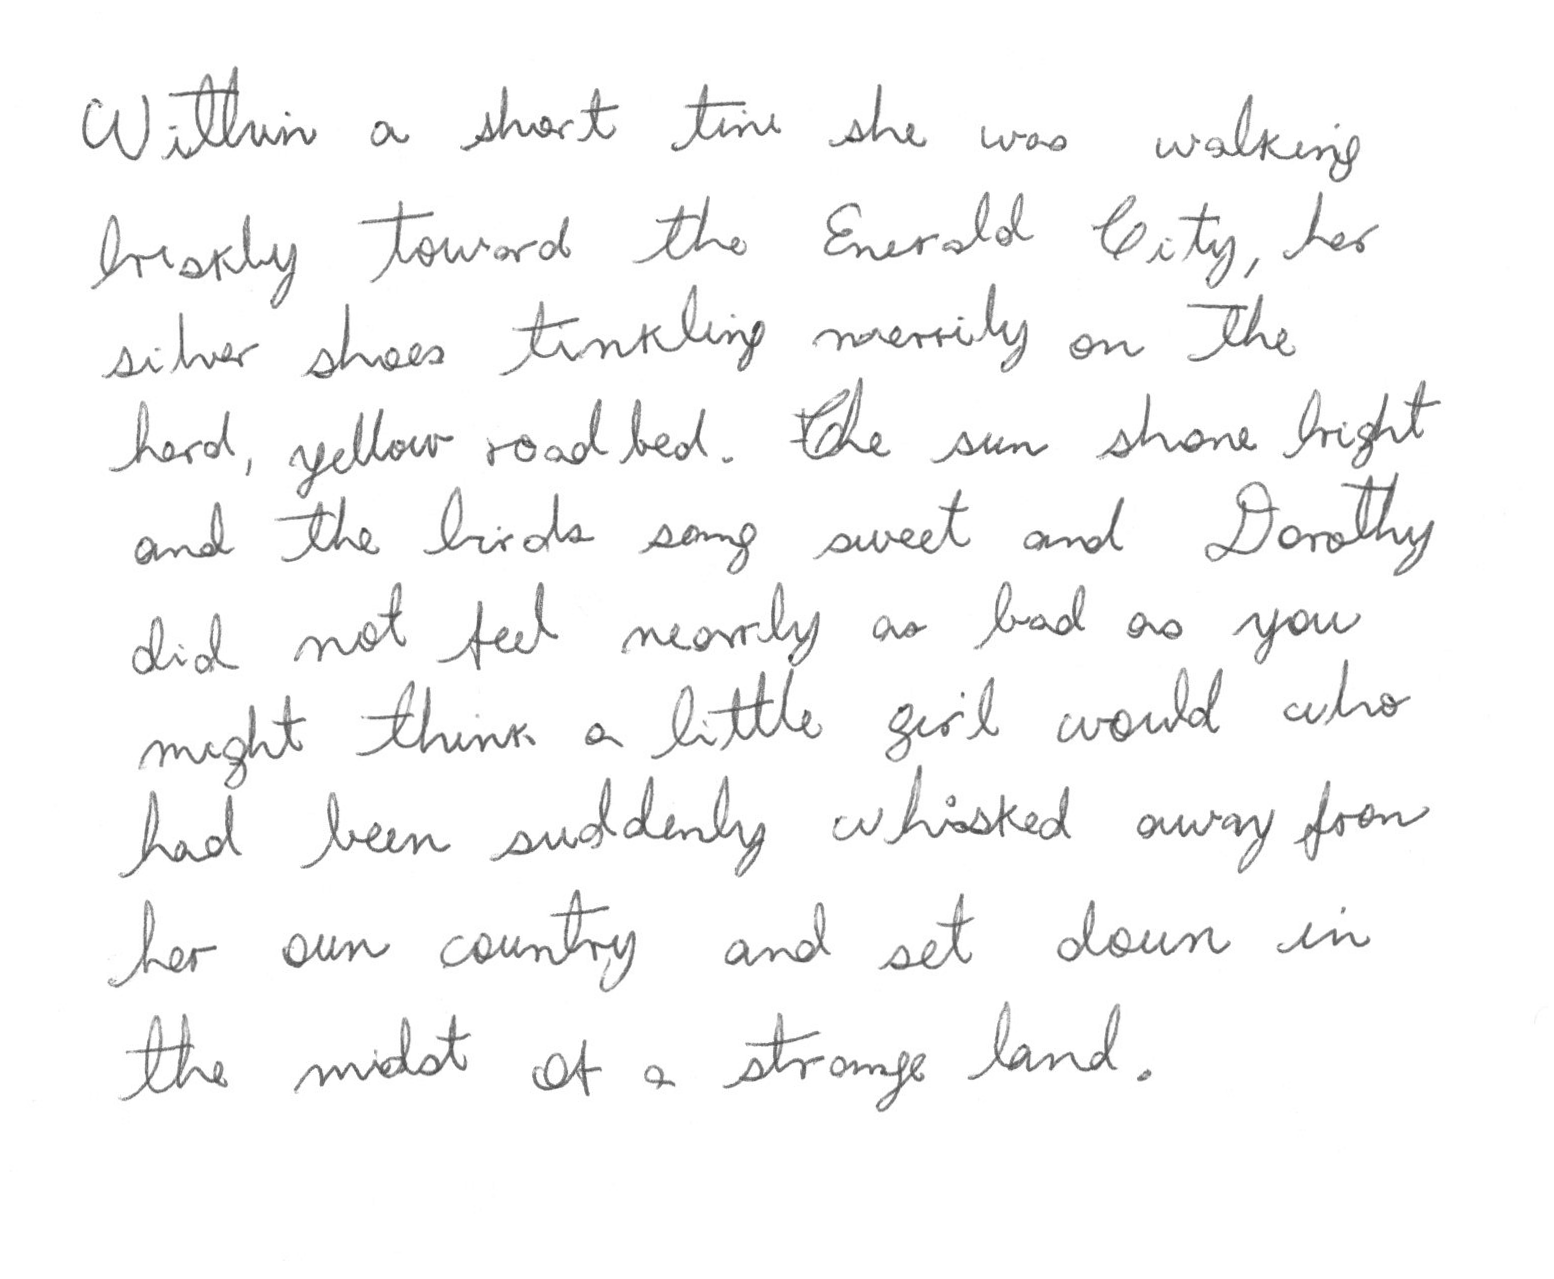 Within a short time she was walking
briskly toward the Emerald City, her
silver shoes tinkling merrily on the
hard, yellow road bed. The sun shone bright
and the birds sang sweet and Dorothy
did not feel nearly as bad as you
might think a little girl would who
had been suddenly whisked away from
her own country and set down in
the midst of a strange land.